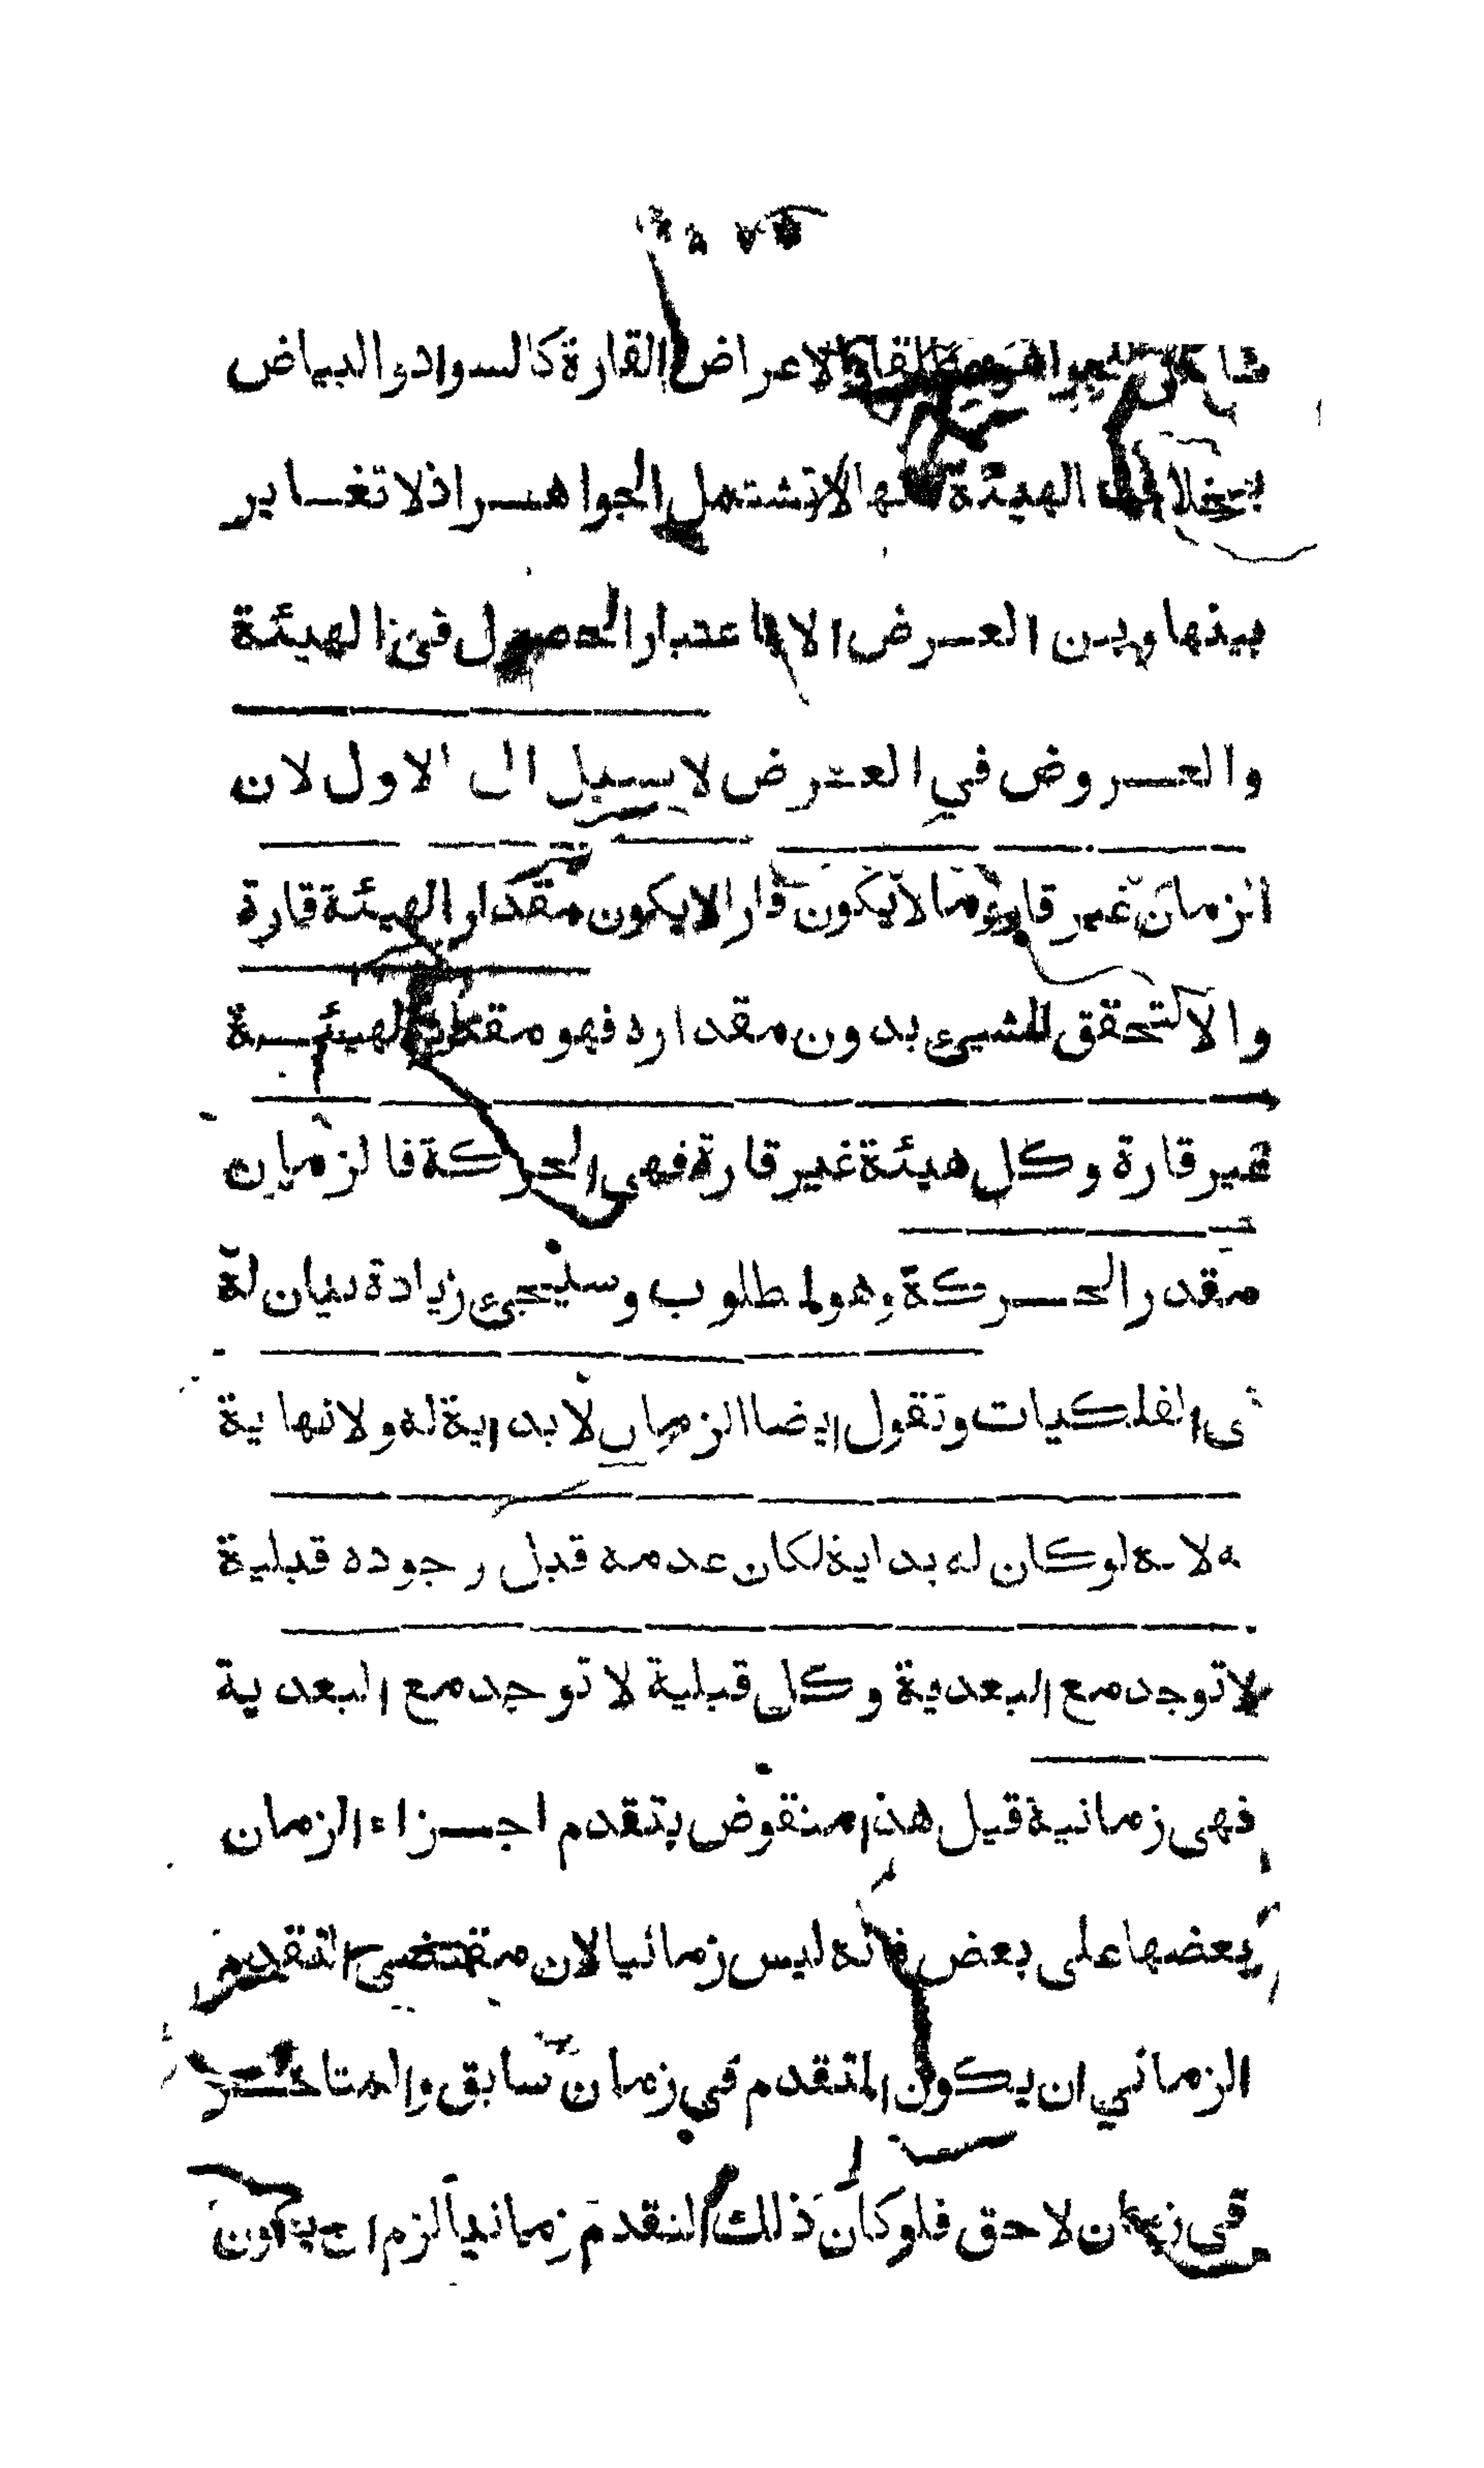 القارة والاعراض القارة كالسواد والبياض
بخلاف الهيئة فانها لا تشتمل الجواهر اذ لا تغاير
بينها وبين العرض الا باعتبار الحصول في الهيئة
والعروض في العرض لا سبيل الى الاول لان
الزمان غير قار وما لا يكون قارا لا يكون مقدار الهيئة قارة
والا لتحقق الشيئ بدون مقداره فهو مقدار لهيئة
غير قارة وكل هيئة غير قارة فهى الحركة فالزمان
مقدر الحركة وهو لمطلوب وسنيجئ زيادة بيان لة
فى الفلكيات ونقول ايضا الزمان لا بداية له ولا نهاية
ه لانه لو كان له بداية لكان عدمه قبل وجوده قبلية
لا توجد مع البعدية وكل قبلية لا توجد مع البعدية
فهى زمانية قيل هذا منقوض بتقدم اجزاء الزمان
بعضها على بعض فانه ليس زمانيا لان مقتضى التقدم
الزماني ان يكون المتقدم في زمان سابق والمتاخر
في زمان لاحق فلو كان ذلك التقدم زمانيا لزم ان يكون